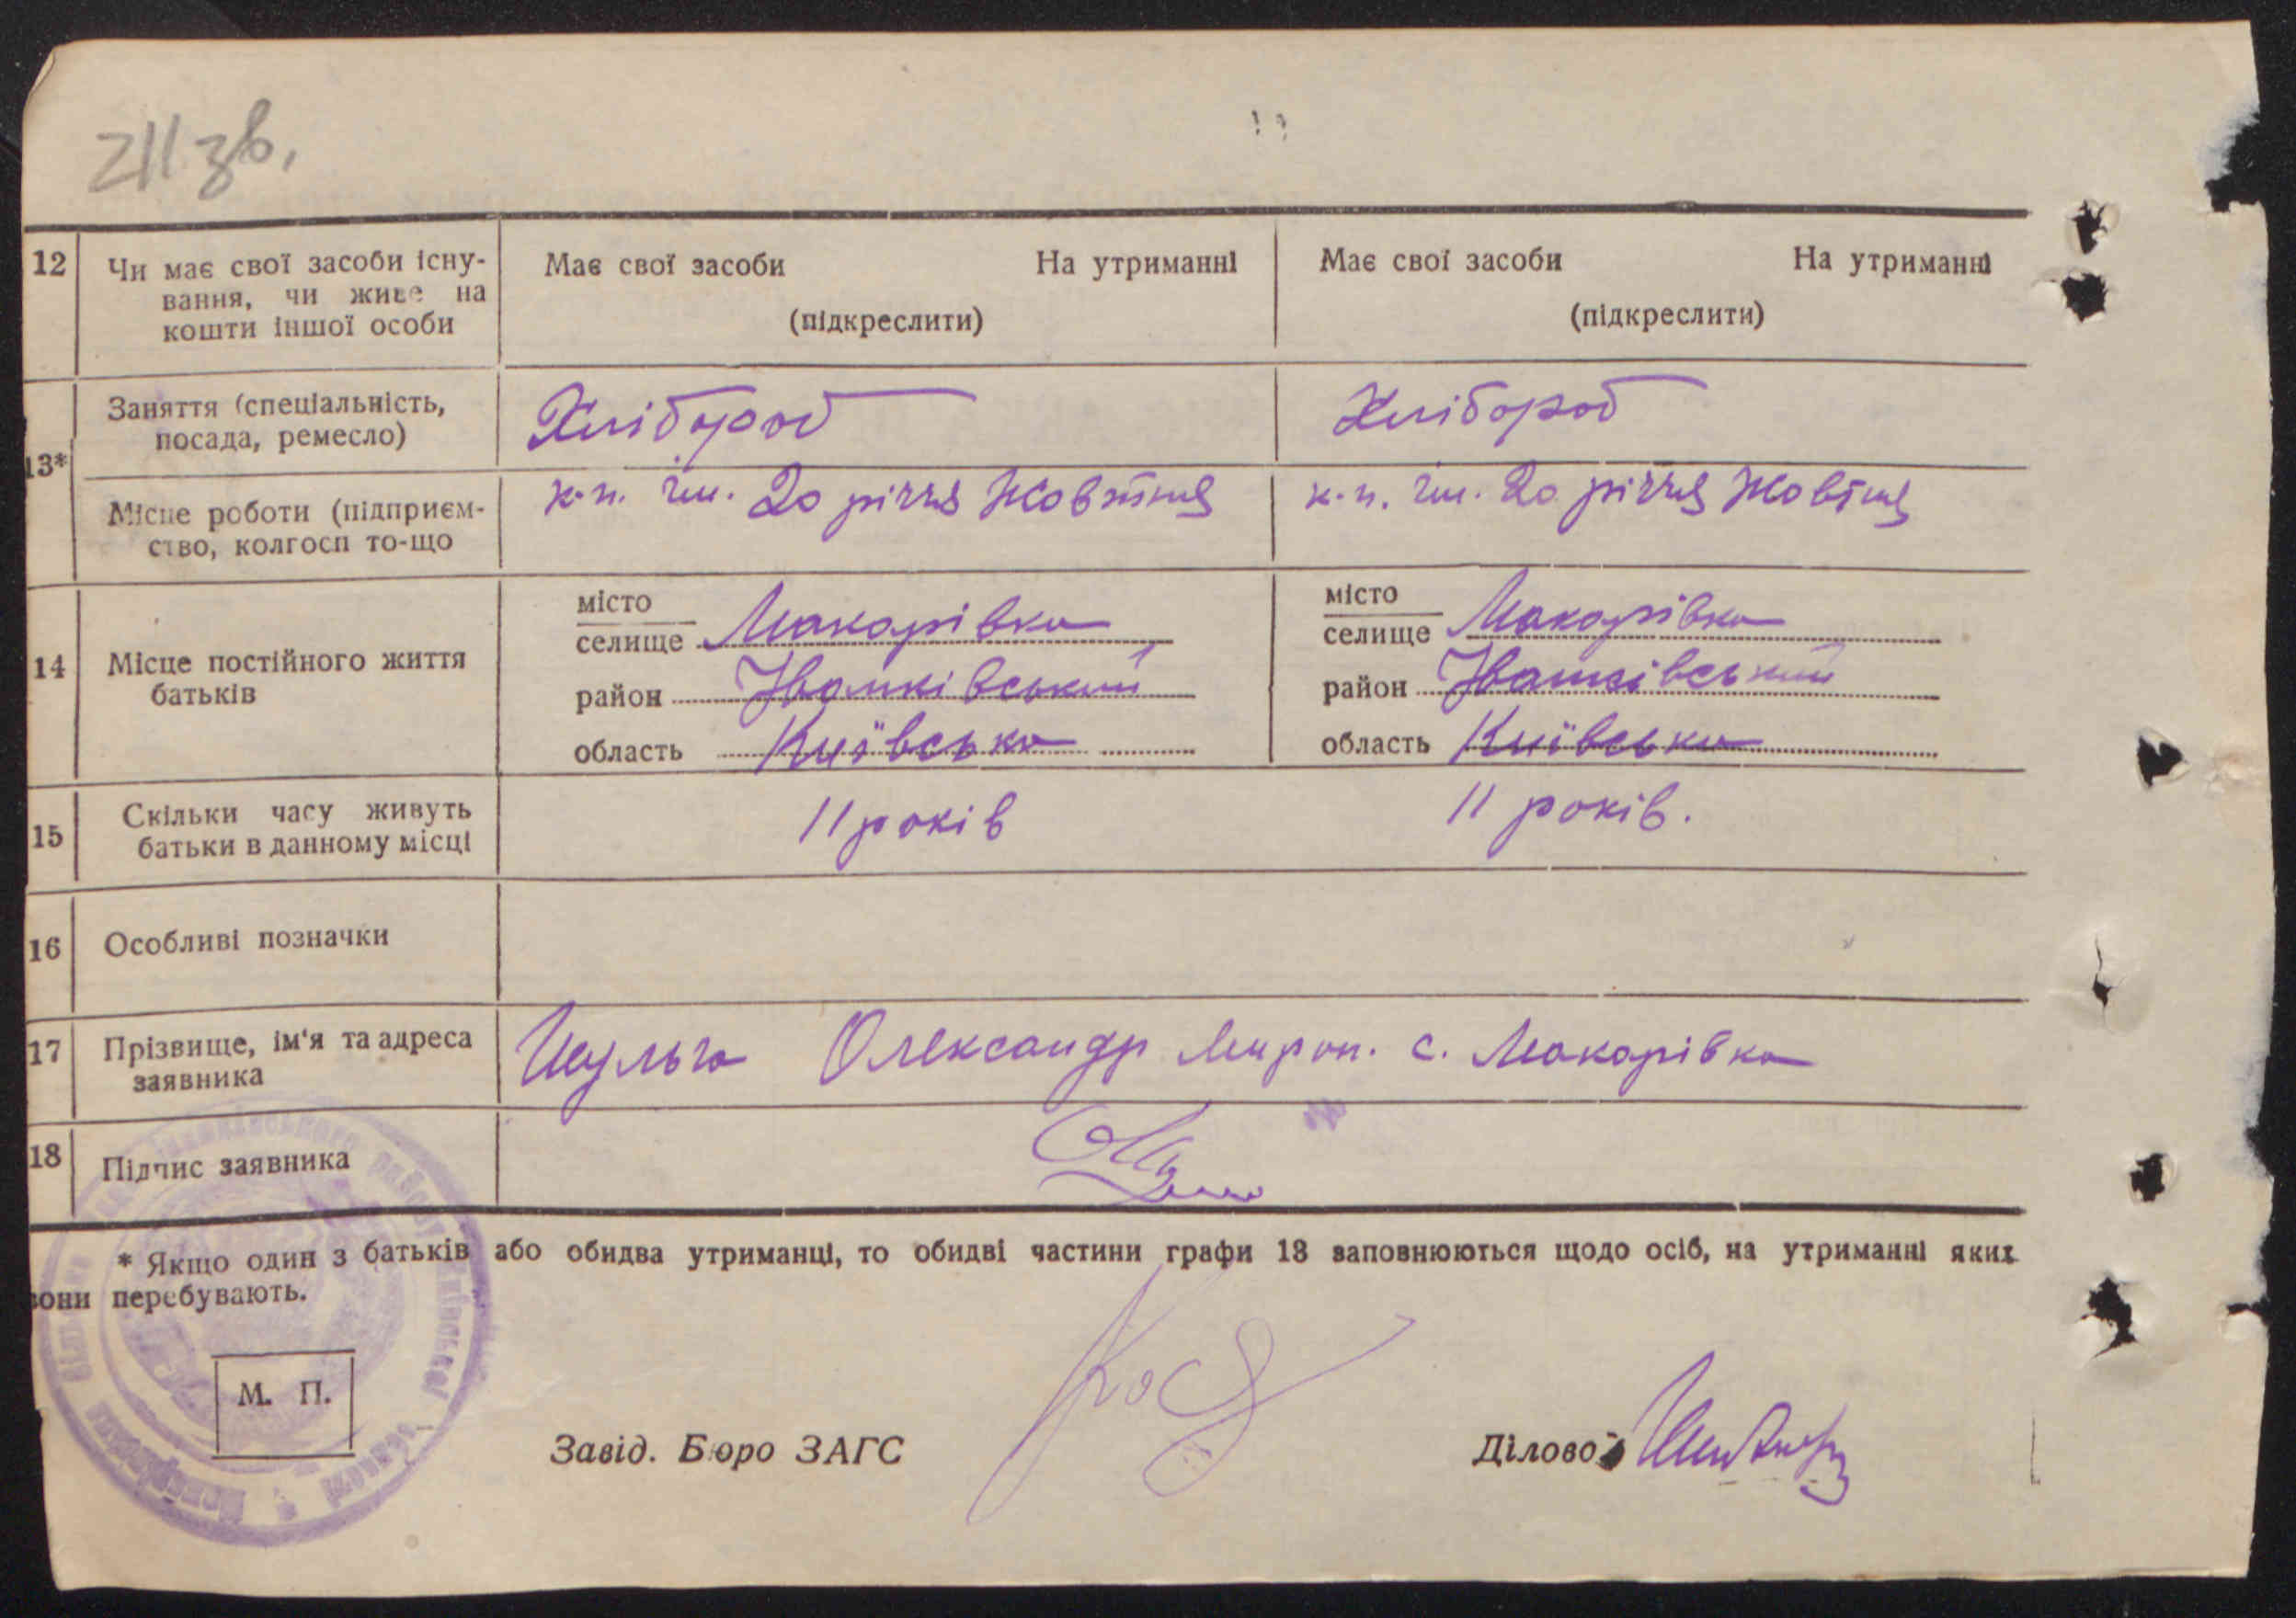 211 зв.
12 Чи має свої засоби існу- Має свої засоби На утриманні Має свої засоби На утриманні
вання, чи живе на (підкреслити) (підкреслити)
кошти іншої особи
13* Заняття (спеціальність, Хлібороб Хлібороб
посада, ремесло)
Місце роботи (підприєм- к-п. ім. 20 річчя Жовтня к-п. ім. 20 річчя Жовтня
ство, колгосп то-що
14 Місце постійного життя
батьків
місто
селище Макарівка
район Іванківський
область Київська
місто
селище Макарівка
район Іванківський
область Київська
15 Скільки часу живуть 11 років 11 років.
батьки в данному місці
16 Особливі позначки
17 Прізвище, ім'я та адреса Шульга Олександр Мирон. с. Макарівка
заявника
18 Підпис заявника
* Якщо один з батьків або обидва утриманці, то обидві частини графи 13 заповнюються щодо осіб, на утриманні яких
вони перебувають.
М. П.
Завід. Бюро ЗАГС Діловод